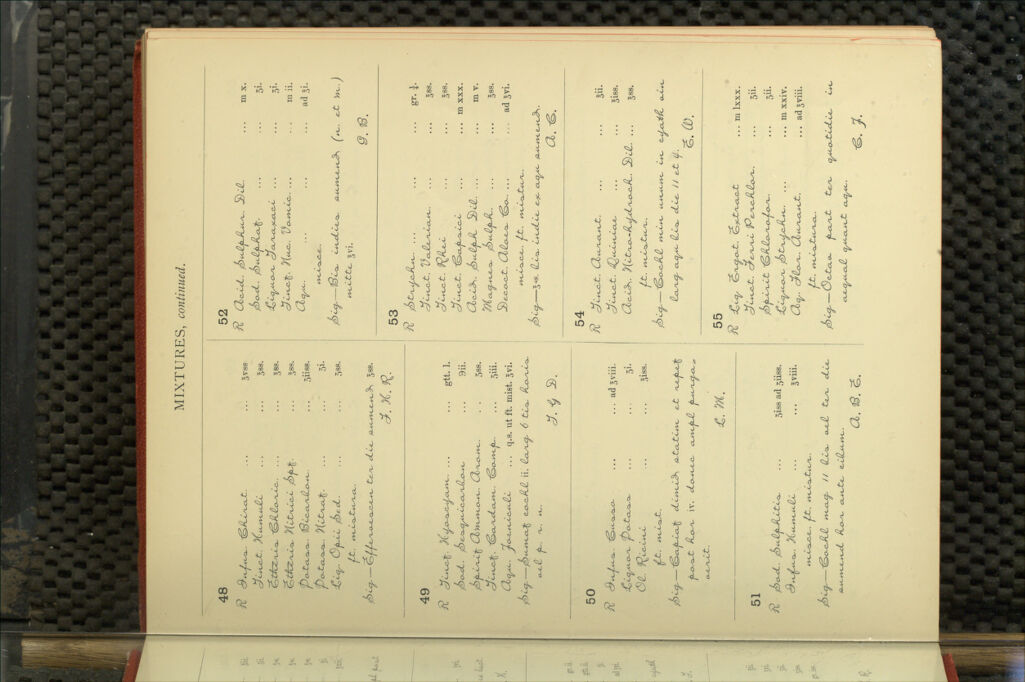 MIXTURES, continued.
48
R Infus Chirat. ... ... ʒvss
Tinct. Humuli ... ... ʒss.
Etheris Chloric. ... ... ʒss.
Etheris Nitrici Spt. ... ʒss.
Potass. Bicarbon ... ʒiiss.
Potass. Nitrat. ... ʒi.
Liq. Opii Sed. ... ... ʒss.
ft. mistura.
Sig—Effervescen ter die sumend ʒss.
F. H. R.
49
R Tinct. Hyoscyam. ... ... gtt. l.
Sod. Sesquicarbon ... ℈ii.
Spirit Ammon. Arom. ... ʒss.
Tinct. Cardam. Comp. ... ʒiii.
Aqu. Foeniculi ... q.s. ut ft. mist. ʒvi.
Sig—Sumat cochl ii. larg 6 tis horis
vel p. r. n.
T. G. D.
50
R Infus. Cusso ... ... ad ʒviii.
Liquor Potass ... ... ʒi.
Ol. Ricini ... ... ʒiss.
ft. mist.
Sig—Capiat dimid statim et repet
post hor iv. donec ampl purga-
verit.
L. M.
51
R Sod. Sulphitis ... ʒiss ad ʒiiss.
Infus. Humuli ... ʒviii.
misce. ft. mistur.
Sig—Cochl mag 11 bis vel ter die
sumend hor ante cibum.
A. B. C.
52
R Acid. Sulphur Dil. ... m x.
Sod. Sulphat. ... ... ʒi.
Liquor Taraxaci ... ʒi.
Tinct. Nuc. Vomic. ... m ii.
Aqu. ... ... ad ʒi.
misce.
Sig—Bis indies sumend (n. et m.)
mitte ʒvi.
J. B.
53
R Strychn. ... ... gr. ¼.
Tinct. Valerian. ... ʒss.
Tinct Rhei ... ... ʒss.
Tinct. Capsici ... ... m xxx.
Acid. Sulph Dil. ... m v.
Magnes Sulph. ... ʒss.
Decoct. Aloes Co. ... ad ʒvi.
misce ft. mistur.
Sig—ʒss bis indie ex aqu sumend.
A. C.
54
R Tinct. Aurant. ... ... ʒii.
Tinct. Quiniae ... ... ʒiss.
Acid. Nitro-hydroch. Dil. ... ʒss.
ft. mistur.
Sig—Cochl min unum in cyath vin
larg aqu bis die 11 et 4.
E. W.
55
R Liq. Ergot. Extract ... m lxxx.
Tinct. Ferri Perchlor. ... ʒii.
Spirit Chlorofor. ... ʒii.
Liquor Strychn. ... ... m xxiv.
Aq. Flor. Aurant. ... ad ʒviii.
ft. mistura.
Sig—Octav part ter quotidie in
aequal quant aqu.
C. F.